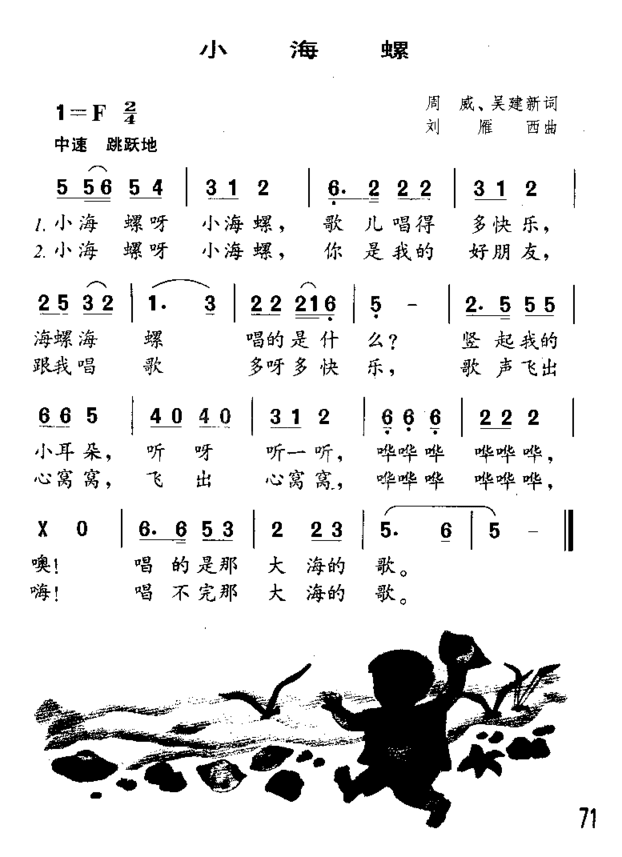 小 海 螺
1=F 2/4
周 威、吴建新词
中速 跳跃地
刘 雁 西曲
5 56 5 4 | 3 1 2 | 6· 2 2 2 | 3 1 2 |
1. 小海 螺呀 小海螺, 歌 儿唱得 多快乐,
2. 小海 螺呀 小海螺, 你 是我的 好朋友,
2 5 3 2 | 1· 3 | 2 2 2 1 6 | 5 - | 2· 5 5 5 |
海螺海 螺 唱的是什 么? 竖 起我的
跟我唱 歌 多呀多快 乐, 歌 声飞出
6 6 5 | 4 0 4 0 | 3 1 2 | 6 6 6 | 2 2 2 |
小耳朵, 听 呀 听一听, 哗哗哗 哗哗哗,
心窝窝, 飞 出 心窝窝, 哗哗哗 哗哗哗,
X 0 | 6· 6 5 3 | 2 2 3 | 5· 6 | 5 - ‖
噢! 唱 的是那 大 海的 歌。
嗨! 唱 不完那 大 海的 歌。
71